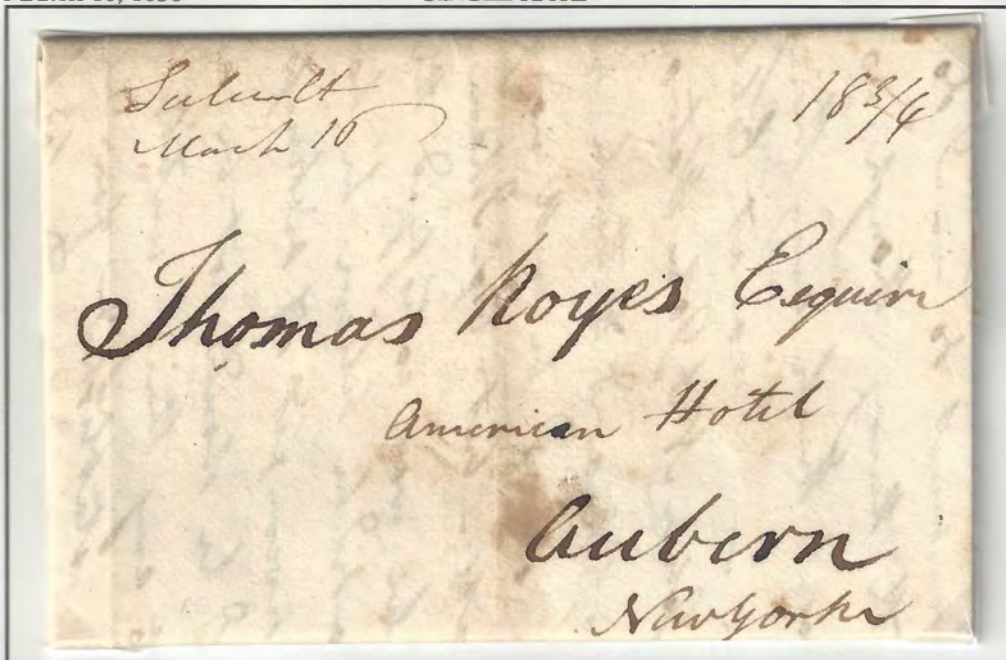 March 10
18 3/4
Thomas Noyes Esquire
American Hotel
Aubern
New York